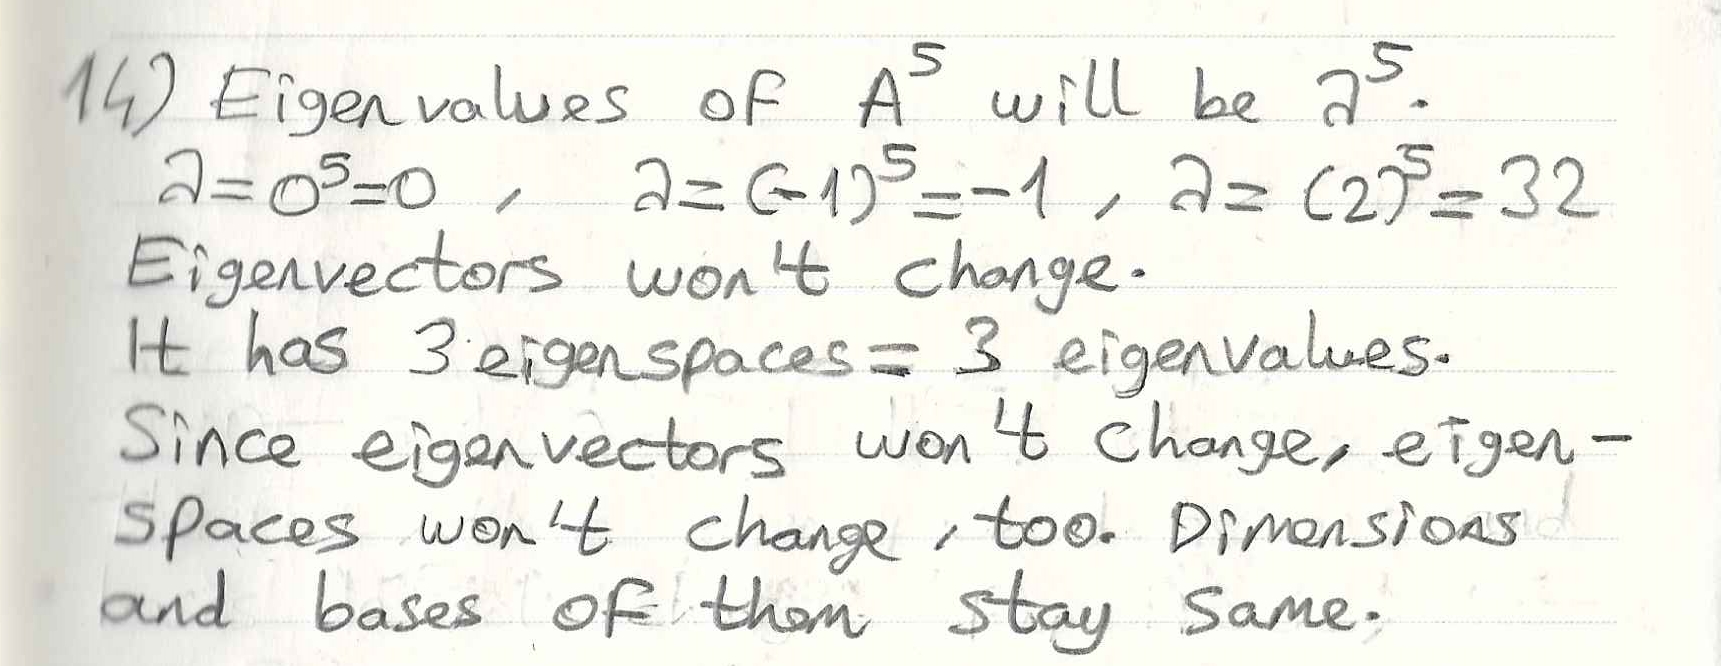 14) Eigenvalues of A⁵ will be λ⁵.
λ=0⁵=0, λ=(-1)⁵=-1, λ=(2)⁵=32
Eigenvectors won't change.
It has 3 eigenspaces = 3 eigenvalues.
Since eigenvectors won't change, eigen-
spaces won't change, too. Dimensions
and bases of them stay same.